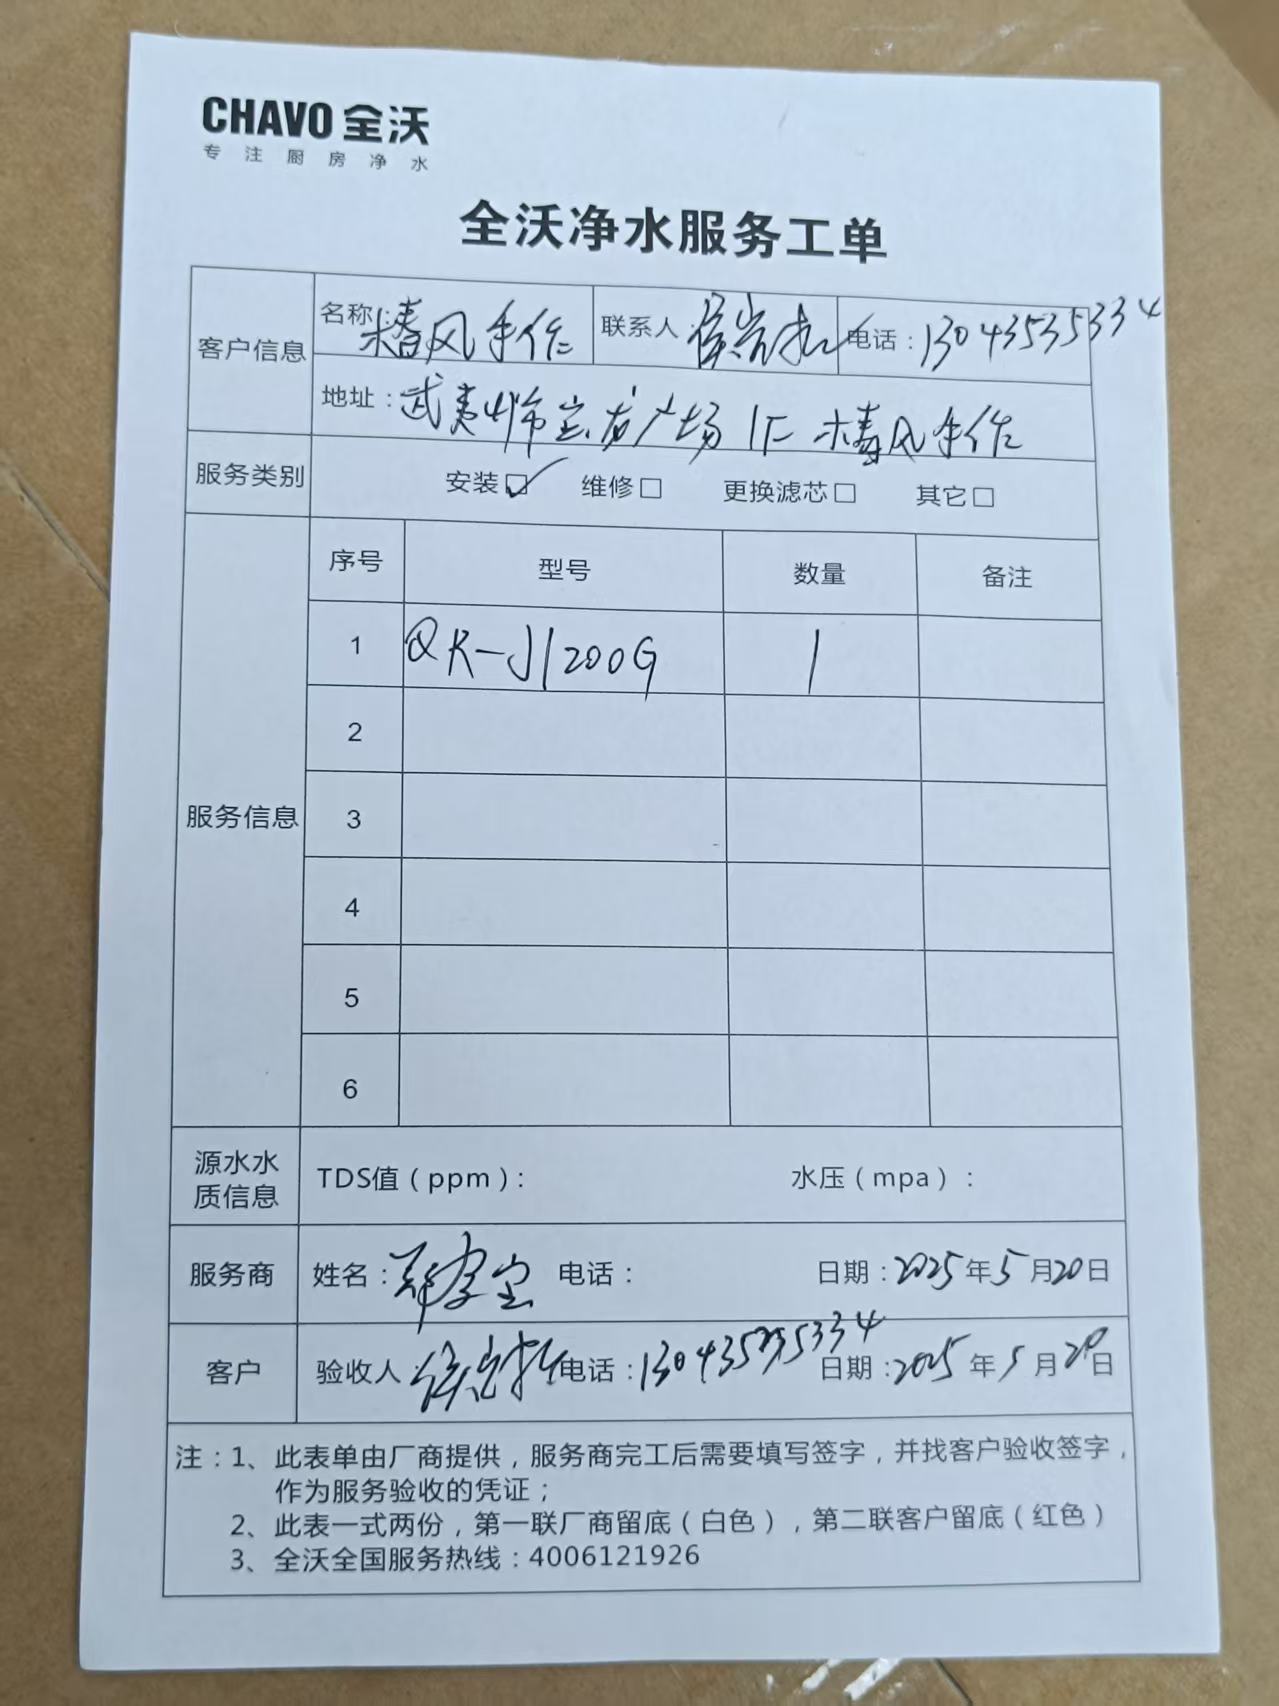 CHAVO 全沃
专注厨房净水
全沃净水服务工单
客户信息 名称：椿风手作 联系人 侯 电话：13043535334
地址：武夷山市宝龙广场1F 椿风手作
服务类别 安装☑ 维修□ 更换滤芯□ 其它□
服务信息 序号 型号 数量 备注
1 QR-J1200G 1
2
3
4
5
6
源水水质信息 TDS值（ppm）： 水压（mpa）：
服务商 姓名： 电话： 日期：2025年5月20日
客户 验收人：侯 电话：13043535334 日期：2025年5月20日
注：1、此表单由厂商提供，服务商完工后需要填写签字，并找客户验收签字，
作为服务验收的凭证；
2、此表一式两份，第一联厂商留底（白色），第二联客户留底（红色）
3、全沃全国服务热线：4006121926